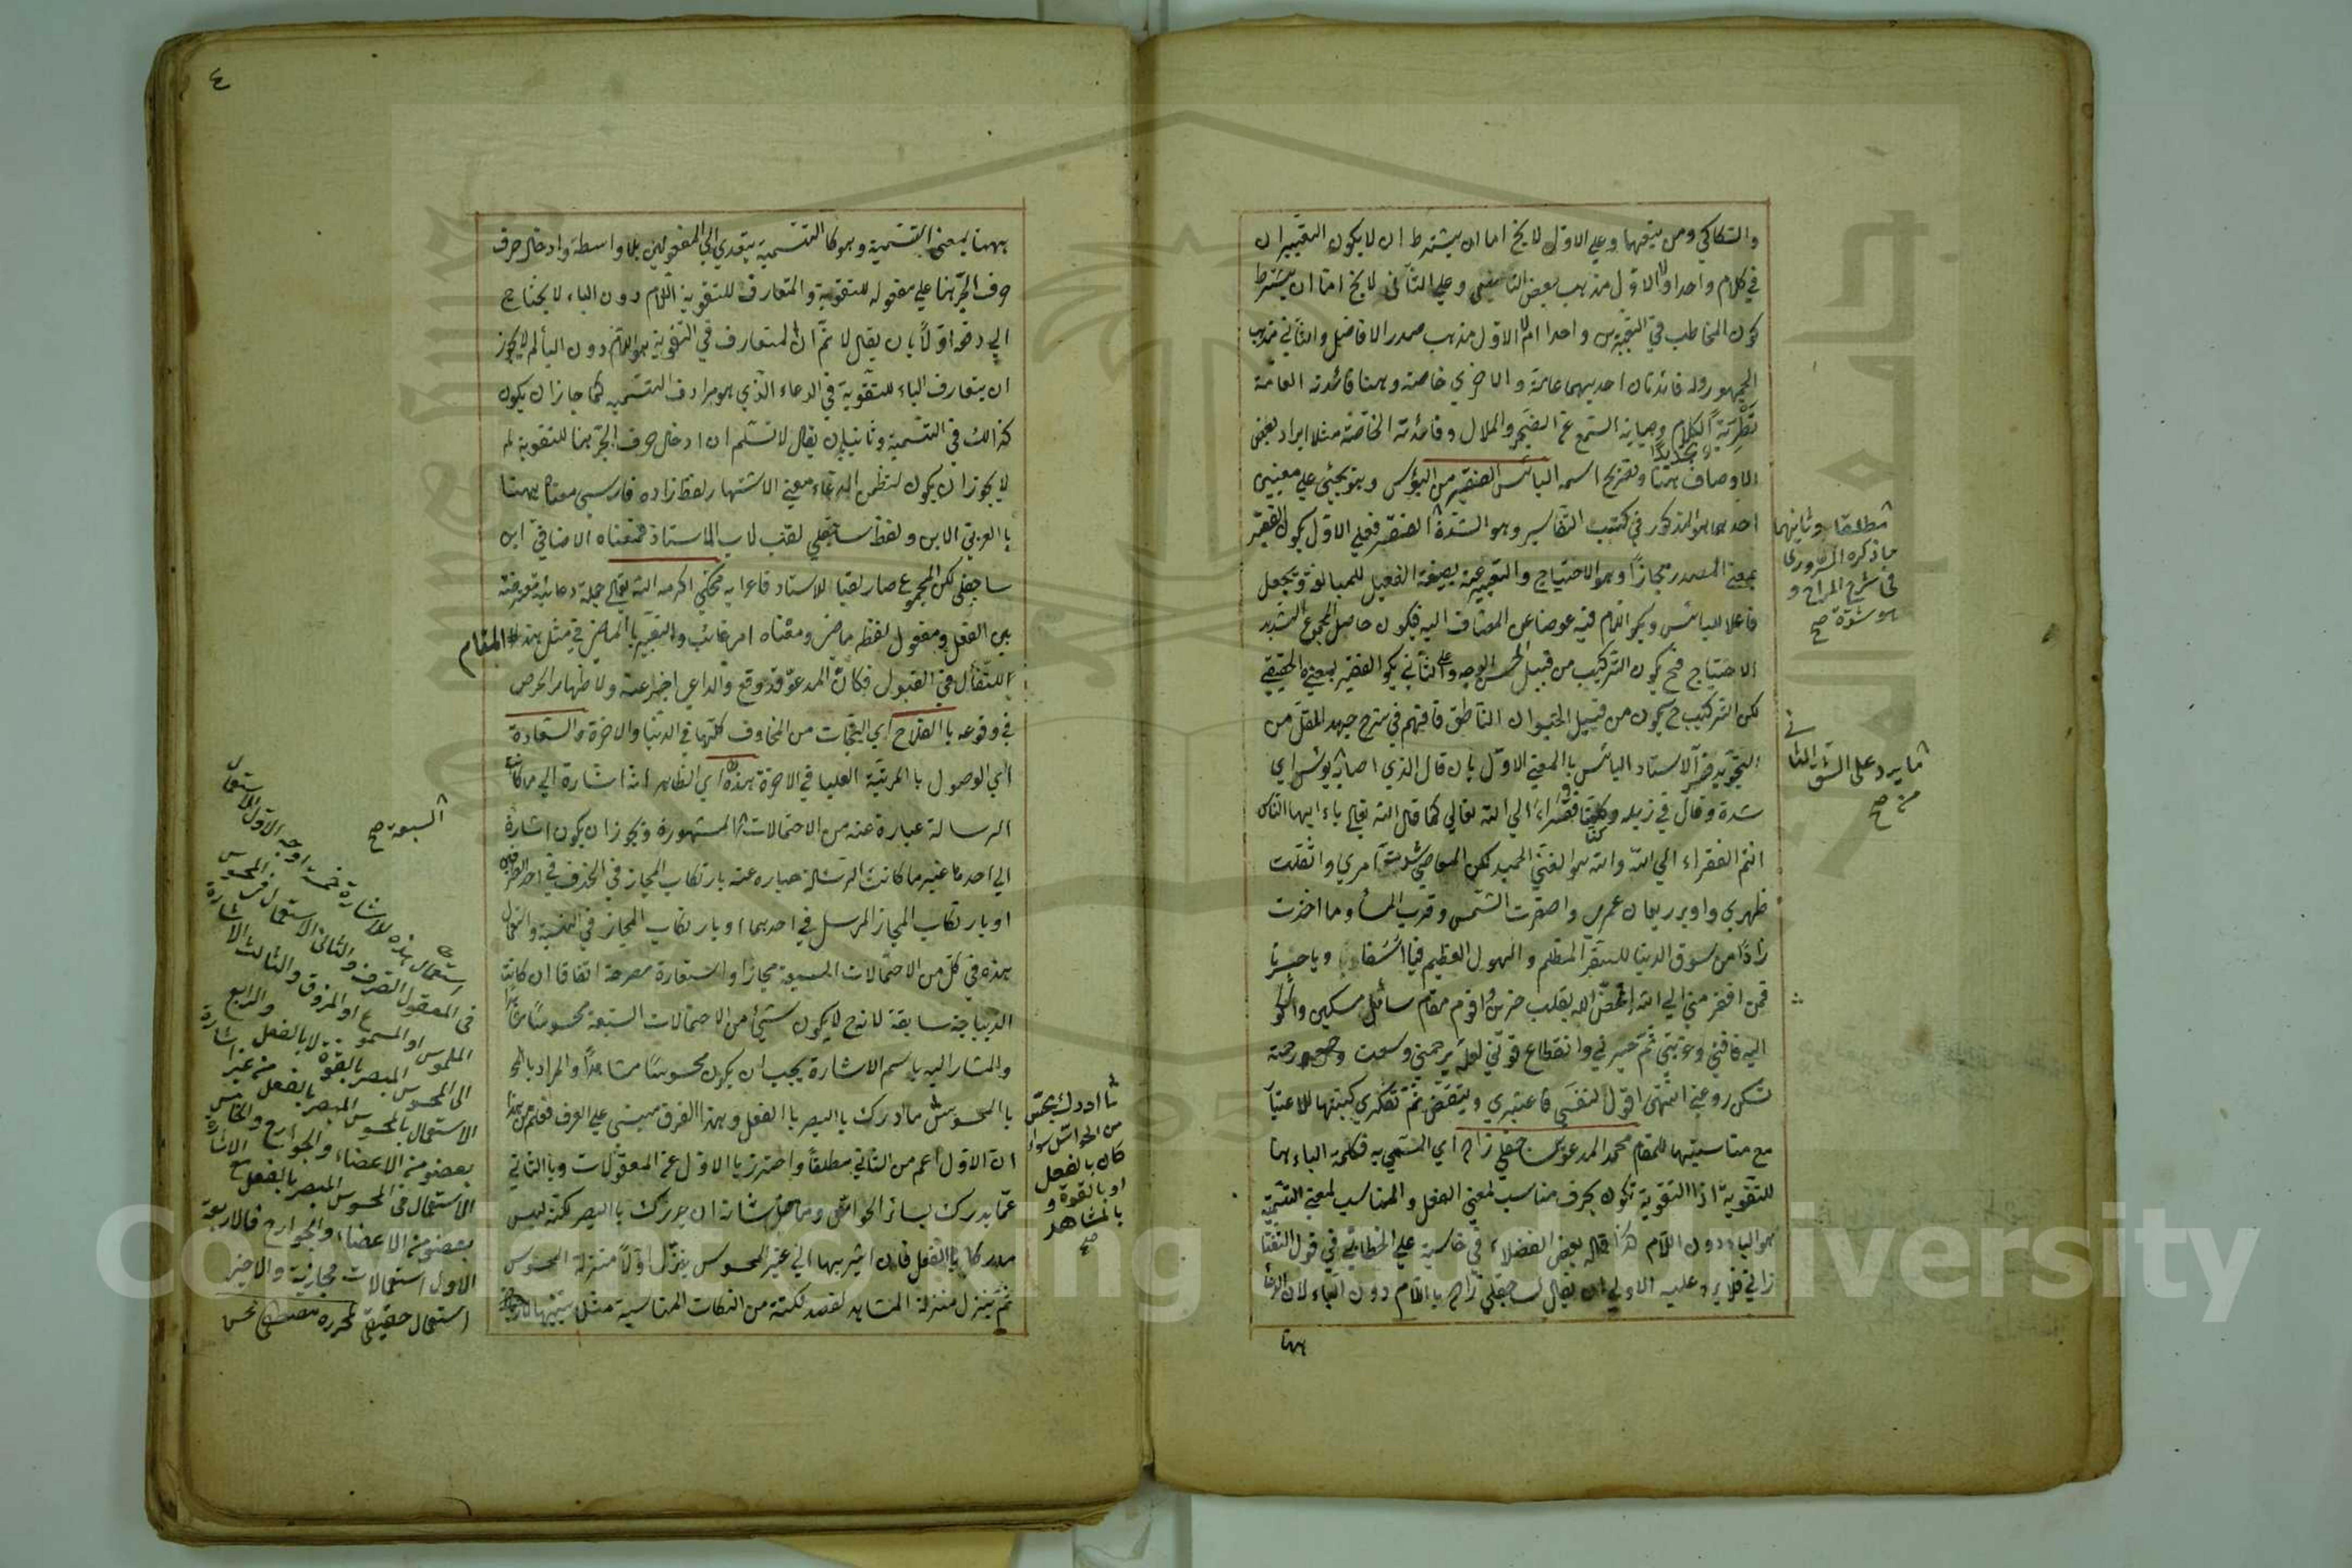 والسكاكي ومن يتبعهما وعلى الاول لا يخ اما ان يشترط ان لا يكون التعبيران
في كلام واحد اولا والاول مذهب بعض الناس وعلى الثاني لا يخ اما ان يشترط
كون المخاطب في التعبيرين واحدا ام لا الاول مذهب صدر الافاضل والثاني مذهب
الجمهور وله فائدتان احديهما عامة والاخرى خاصة وههنا فائدته العامة
تطرية الكلام وصيانة السمع عن الضجر والملال وفائدته الخاصة مثلا ايراد بعض
الاوصاف ههنا وتصريح اسمه البائس الفقير من البؤس وهو يجئ على معنيين
احدهما هو المذكور في كتب التفاسير وهو الشدة الفقير فعلى الاول يكون الفقير
بمعنى المصدر مجازا وهو الاحتياج والتعبير عنه بصيغة الفعيل للمبالغة ويجعل
فاعلا للبائس ويكو اللام فيه عوضا عن المضاف اليه فيكون حاصل المجموع الشديد
الاحتياج فح يكون التركيب من قبيل الحسن الوجه وعلى الثاني يكو الفقير بمعنى الحقيقي
لكن التركيب ح يكون من قبيل الحيوان الناطق فافهم في شرح جهد المقل من
التجويد فسر الاستاد البائس با المعنى الاول بان قال الذي اصابه بؤس اي
شدة وقال في ذيله وكلنا فقراء الى الله تعالى كما قال الله تعالى يا ايها الناس
انتم الفقراء الى الله والله هو الغني الحميد لكن المعاصي شدت امري واثقلت
ظهري وادبر ريعان عمري واصفرت الشمس وقرب المسأ وما اخذت
زادا من سوق الدنيا للسفر المظلم والهول العظيم فيا اسفا ويا حسرتا
فمن افقر مني الى الله بقلب حزين واقوم مقام سائل مسكين واشكو
اليه فاقتي وغربتي ثم حيرتي وانقطاع قوتي لعله يرحمني وسعت رحمته
تسكن روعتي انتهى اقول لنفسي فاعتبري ثم تفكري
مع مناسبتها للمقام محمد المدعو بساچقلي زاده اي المسمى به فكلمة الباء هنا
للتقوية اذ التقوية تكون بحرف مناسب لمعنى الفعل والمناسب لمعنى التسمية
هو الباء دون اللام هكذا قاله بعض الفضلاء في حاشية على الخطائي في قول التفتا
زاني فلا يرد عليه الاولى ان يقال لساچقلي زاده با اللام دون الباء لان الدعاء
ههنا
مطلقا وثانيهما
ما ذكره السروري
في شرح المراح و
هو شدة صح
ما يرد على الشق الثاني
منه صح
٤
ههنا بمعنى التسمية وهو كا التسمية يتعدي الى المفعولين بلا واسطة وادخال حرف
حرف الجر هنا على مفعوله للتقوية والمتعارف للتقوية اللام دون الباء لا يحتاج
الى دفعه اولا بان يقال لا نم ان المتعارف في التقوية هو اللام دون البأ لم لا يجوز
ان يتعارف الباء للتقوية في الدعاء الذي هو مرادف التسمية كما جاز ان يكون
كذالك في التسمية وثانيا بان يقال لا نسلم ان ادخال حرف الجر هنا للتقوية لم
لا يجوز ان يكون لتضمن الدعاء معنى الاشتهار لفظ زاده فارسي معناه ههنا
با العربي الابن ولفظ ساچقلي لقب لاب الاستاذ فمعناه الاضافي ابن
ساچقلي لكن المجموع صار لقبا للاستاد فاعرابه محكي اكرمه الله تعالى جملة دعائية معترضة
بين الفعل ومفعول لفظه ماض ومعناه امر غائب والتعبير با الماضي في مثل هذا المقام
للتفأل في القبول فكان المدعو قد وقع والداعي اخبر عنه ولاظهار الحرص
في وقوعه با الفلاح اي النجات من المخاوف كلها في الدنيا والاخرة والسعادة
اي الوصول با المرتبة العليا في الاخرة هذه اي الظاهر انه اشارة الى ما كانت
الرسالة عبارة عنه من الاحتمالات المشهورة ويجوز ان يكون اشارة
الى احد ما غير ما كانت الرسالة عبارة عنه بارتكاب المجاز في الحذف في احد الطرفين
او بارتكاب المجاز المرسل في احدهما او بارتكاب المجاز في النسبة واستعمال
هذه في كل من الاحتمالات السبعة مجاز او استعارة مصرحة اتفاقا ان كانت
الديباجة سابقة لانه ح لا يكون شئ من الاحتمالات السبعة محسوسا مشاهدا
والمشار اليه باسم الاشارة يجب ان يكون محسوسا مشاهدا والمراد
با المحسوس ما ادرك با البصر با الفعل وهذا الفرق مبني على العرف فعلم من هذا
ان الاول اعم من الثاني مطلقا واحترز با الاول عن المعقولات وبا الثاني
عما يدرك بسائر الحواس ومما من شانه ان يدرك با البصر لكنه ليس
مدركا با الفعل فان اشير بها الى غير المحسوس ينزل اولا منزلة المحسوس
ثم ينزل منزلة المشاهد لقصد نكتة من النكات المناسبة مثل
ما ادرك بحس
من الحواس سواء
كان بالفعل
او بالقوة و
بالمشاهد
صح
السبعة صح
استعمال هذه للاشارة خمسة اوجه الاول الاستعمال
في المعقول الصرف والثاني الاستعمال في المحسوس
الملموس او المسموع او المذوق والثالث الاشارة
الى المحسوس المبصر بالقوة لا بالفعل والرابع
الاستعمال بالمحسوس المبصر بالفعل من غير اشارة
بعضو من الاعضاء والجوارح والخامس
الاستعمال في المحسوس المبصر بالفعل مع الاشارة
بعضو من الاعضاء والجوارح فالاربعة
الاول استعمالات مجازية والاخير
استعمال حقيقي لمحرره
Copyright © King Saud University